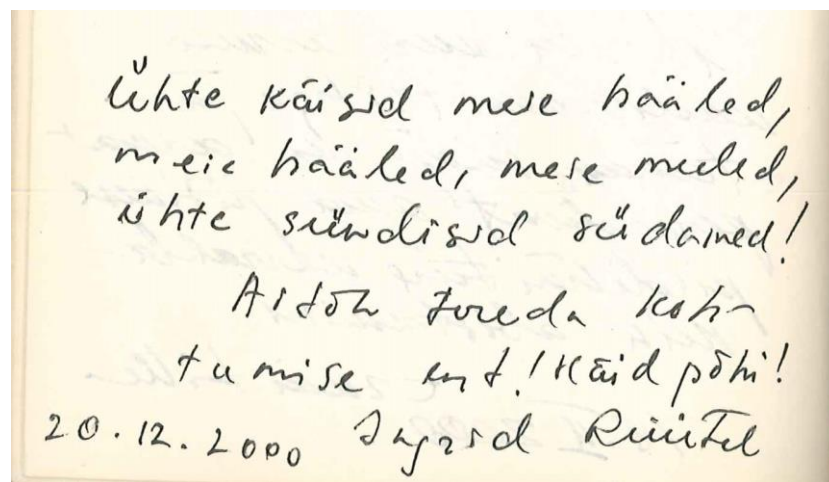 Ühte käisid meie hääled,
meie hääled, meie meeled,
ühte sündisid südamed!
Aitäh toreda koh-
tumise eest! Häid pühi!
20.12.2000 Ingrid Rüütel